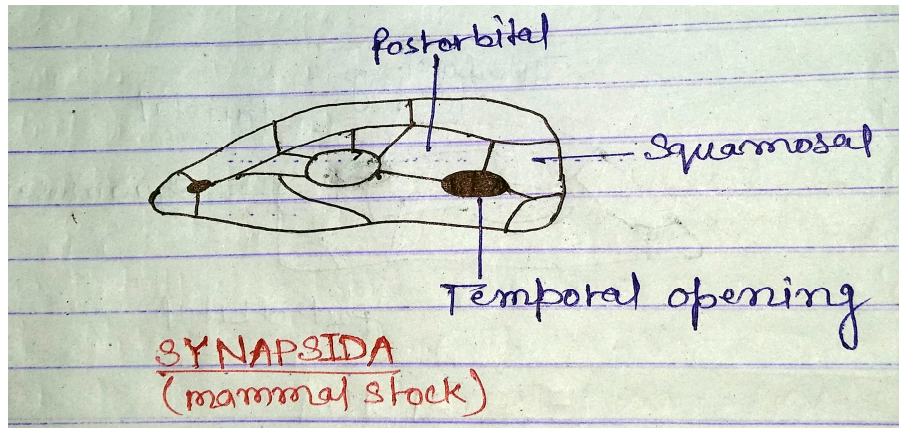 Postorbital
Squamosal
Temporal opening
SYNAPSIDA
(mammal stock)